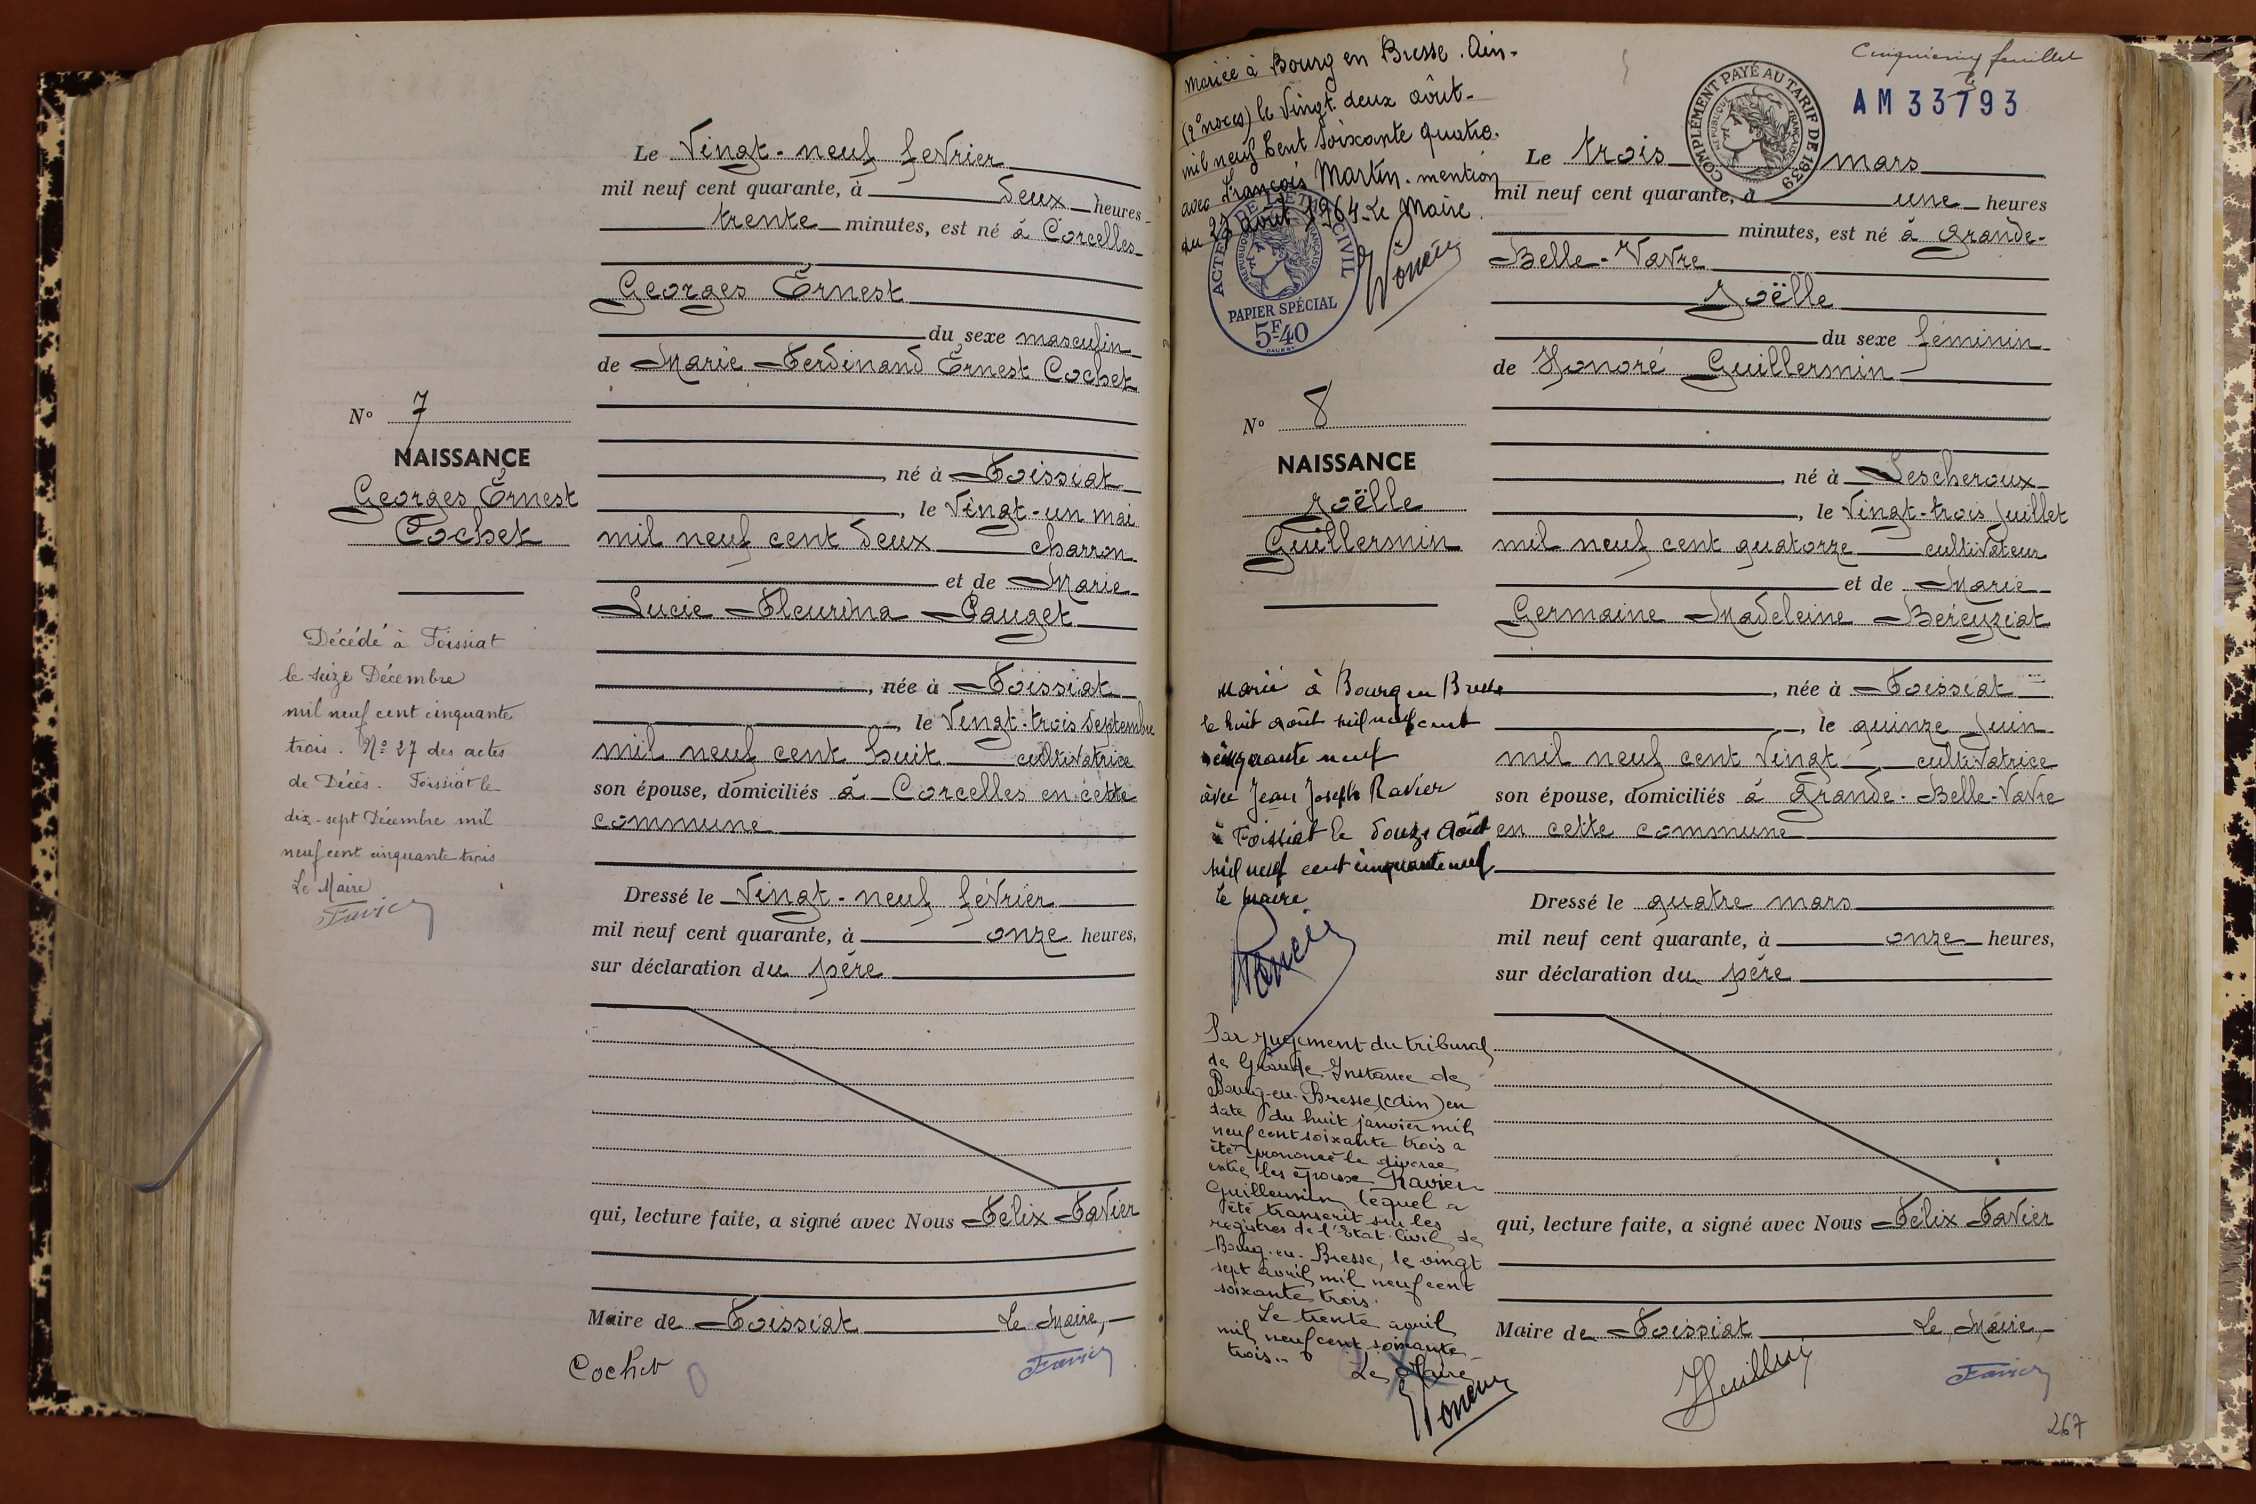 Le Vingt-neuf fevrier
mil neuf cent quarante, à deux heures
trente minutes, est né à Corcelles
Georges Ernest
du sexe masculin
de Marie Ferdinand Ernest Cochet
N° 7
NAISSANCE
Georges Ernest
Cochet
né à Foissiat
, le Vingt-un mai
mil neuf cent deux charron
et de Marie
Lucie Fleurina Pauget
, née à Foissiat
, le Vingt-trois Septembre
mil neuf cent huit cultivatrice
son épouse, domiciliés à Corcelles en cette
commune
Décédé à Foissiat
le seize Décembre
mil neuf cent cinquante
trois. N° 27 des actes
de Décès. Foissiat le
dix-sept Décembre mil
neuf cent cinquante trois
Le Maire
Favier
Dressé le Vingt-neuf février
mil neuf cent quarante, à onze heures,
sur déclaration du père
qui, lecture faite, a signé avec Nous Félix Favier
Maire de Foissiat Le Maire,
Cochet
Favier
Mariée à Bourg en Bresse. Ain-
(2° noces) le Vingt deux août-
mil neuf Cent Soixante quatre.
avec François Martin. mention
du 23 août 1964. Le Maire.
ACTES DE L'ÉTAT CIVIL
RÉPUBLIQUE FRANÇAISE
PAPIER SPÉCIAL
5F40
Cinquième feuillet
AM 33793
COMPLÉMENT PAYÉ AU TARIF DE 1939
RÉPUBLIQUE FRANÇAISE
Le trois mars
mil neuf cent quarante, à une heures
minutes, est né à Grande-
Belle-Vavre
Joëlle
du sexe féminin
de Honoré Guillermin
N° 8
NAISSANCE
Joëlle
Guillermin
né à Lescheroux
, le Vingt-trois Juillet
mil neuf cent quatorze cultivateur
et de Marie
Germaine Madeleine Béreyziat
, née à Foissiat
, le quinze Juin
mil neuf cent Vingt cultivatrice
son épouse, domiciliés à Grande-Belle-Vavre
en cette commune
Marié à Bourg en Bresse
le huit août mil neuf cent
cinquante neuf
avec Jean Joseph Ravier
à Foissiat le douze Août
mil neuf cent cinquante neuf
Le Maire
Par jugement du tribunal
de Grande Instance de
Bourg-en-Bresse (Ain) en
date du huit janvier mil
neuf cent soixante trois a
été prononcé le divorce
entre les époux Ravier
Guillermin lequel a
été transcrit sur les
registres de l'Etat-Civil de
Bourg-en-Bresse, le vingt
sept avril mil neuf cent
soixante trois.
Le trente avril
mil neuf cent soixante
trois..
Le Maire
Dressé le quatre mars
mil neuf cent quarante, à onze heures,
sur déclaration du père
qui, lecture faite, a signé avec Nous Félix Favier
Maire de Foissiat Le Maire,
Favier
267